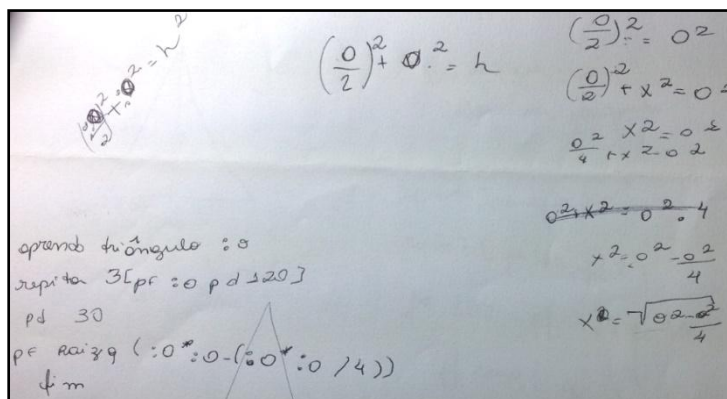 (o/2)² + o² = h²
(o/2)² + o.² = h
(o/2)² = o²
(o/2)² + x² = o²
x² = o²
o²/4 + x² = o²
o² + x² = o² . 4
x² = o² - o²/4
x = √o² - o²/4
aprenda triângulo :o
repita 3[pf :o pd 120]
pd 30
pf raizq (:o*:o-(:o*:o /4))
fim